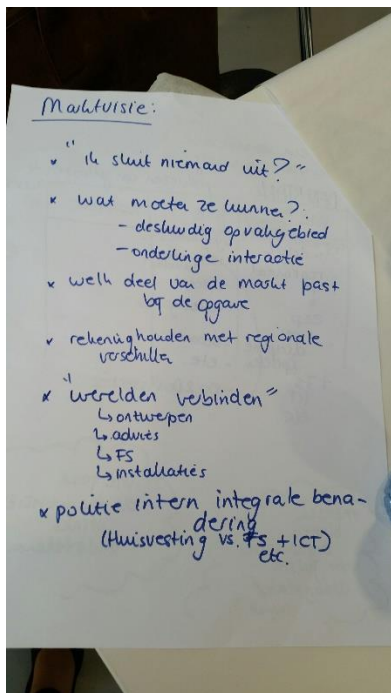 Marktvisie:
* "ik sluit niemand uit?"
* wat moeten ze kunnen?
- deskundig op vakgebied
- onderlinge interactie
* welk deel van de markt past
bij de opgave
* rekening houden met regionale
verschillen
* "werelden verbinden"
↳ ontwerpen
↳ advies
↳ FS
↳ installaties
* politie intern integrale bena-
dering
(Huisvesting vs. FS + ICT)
etc.